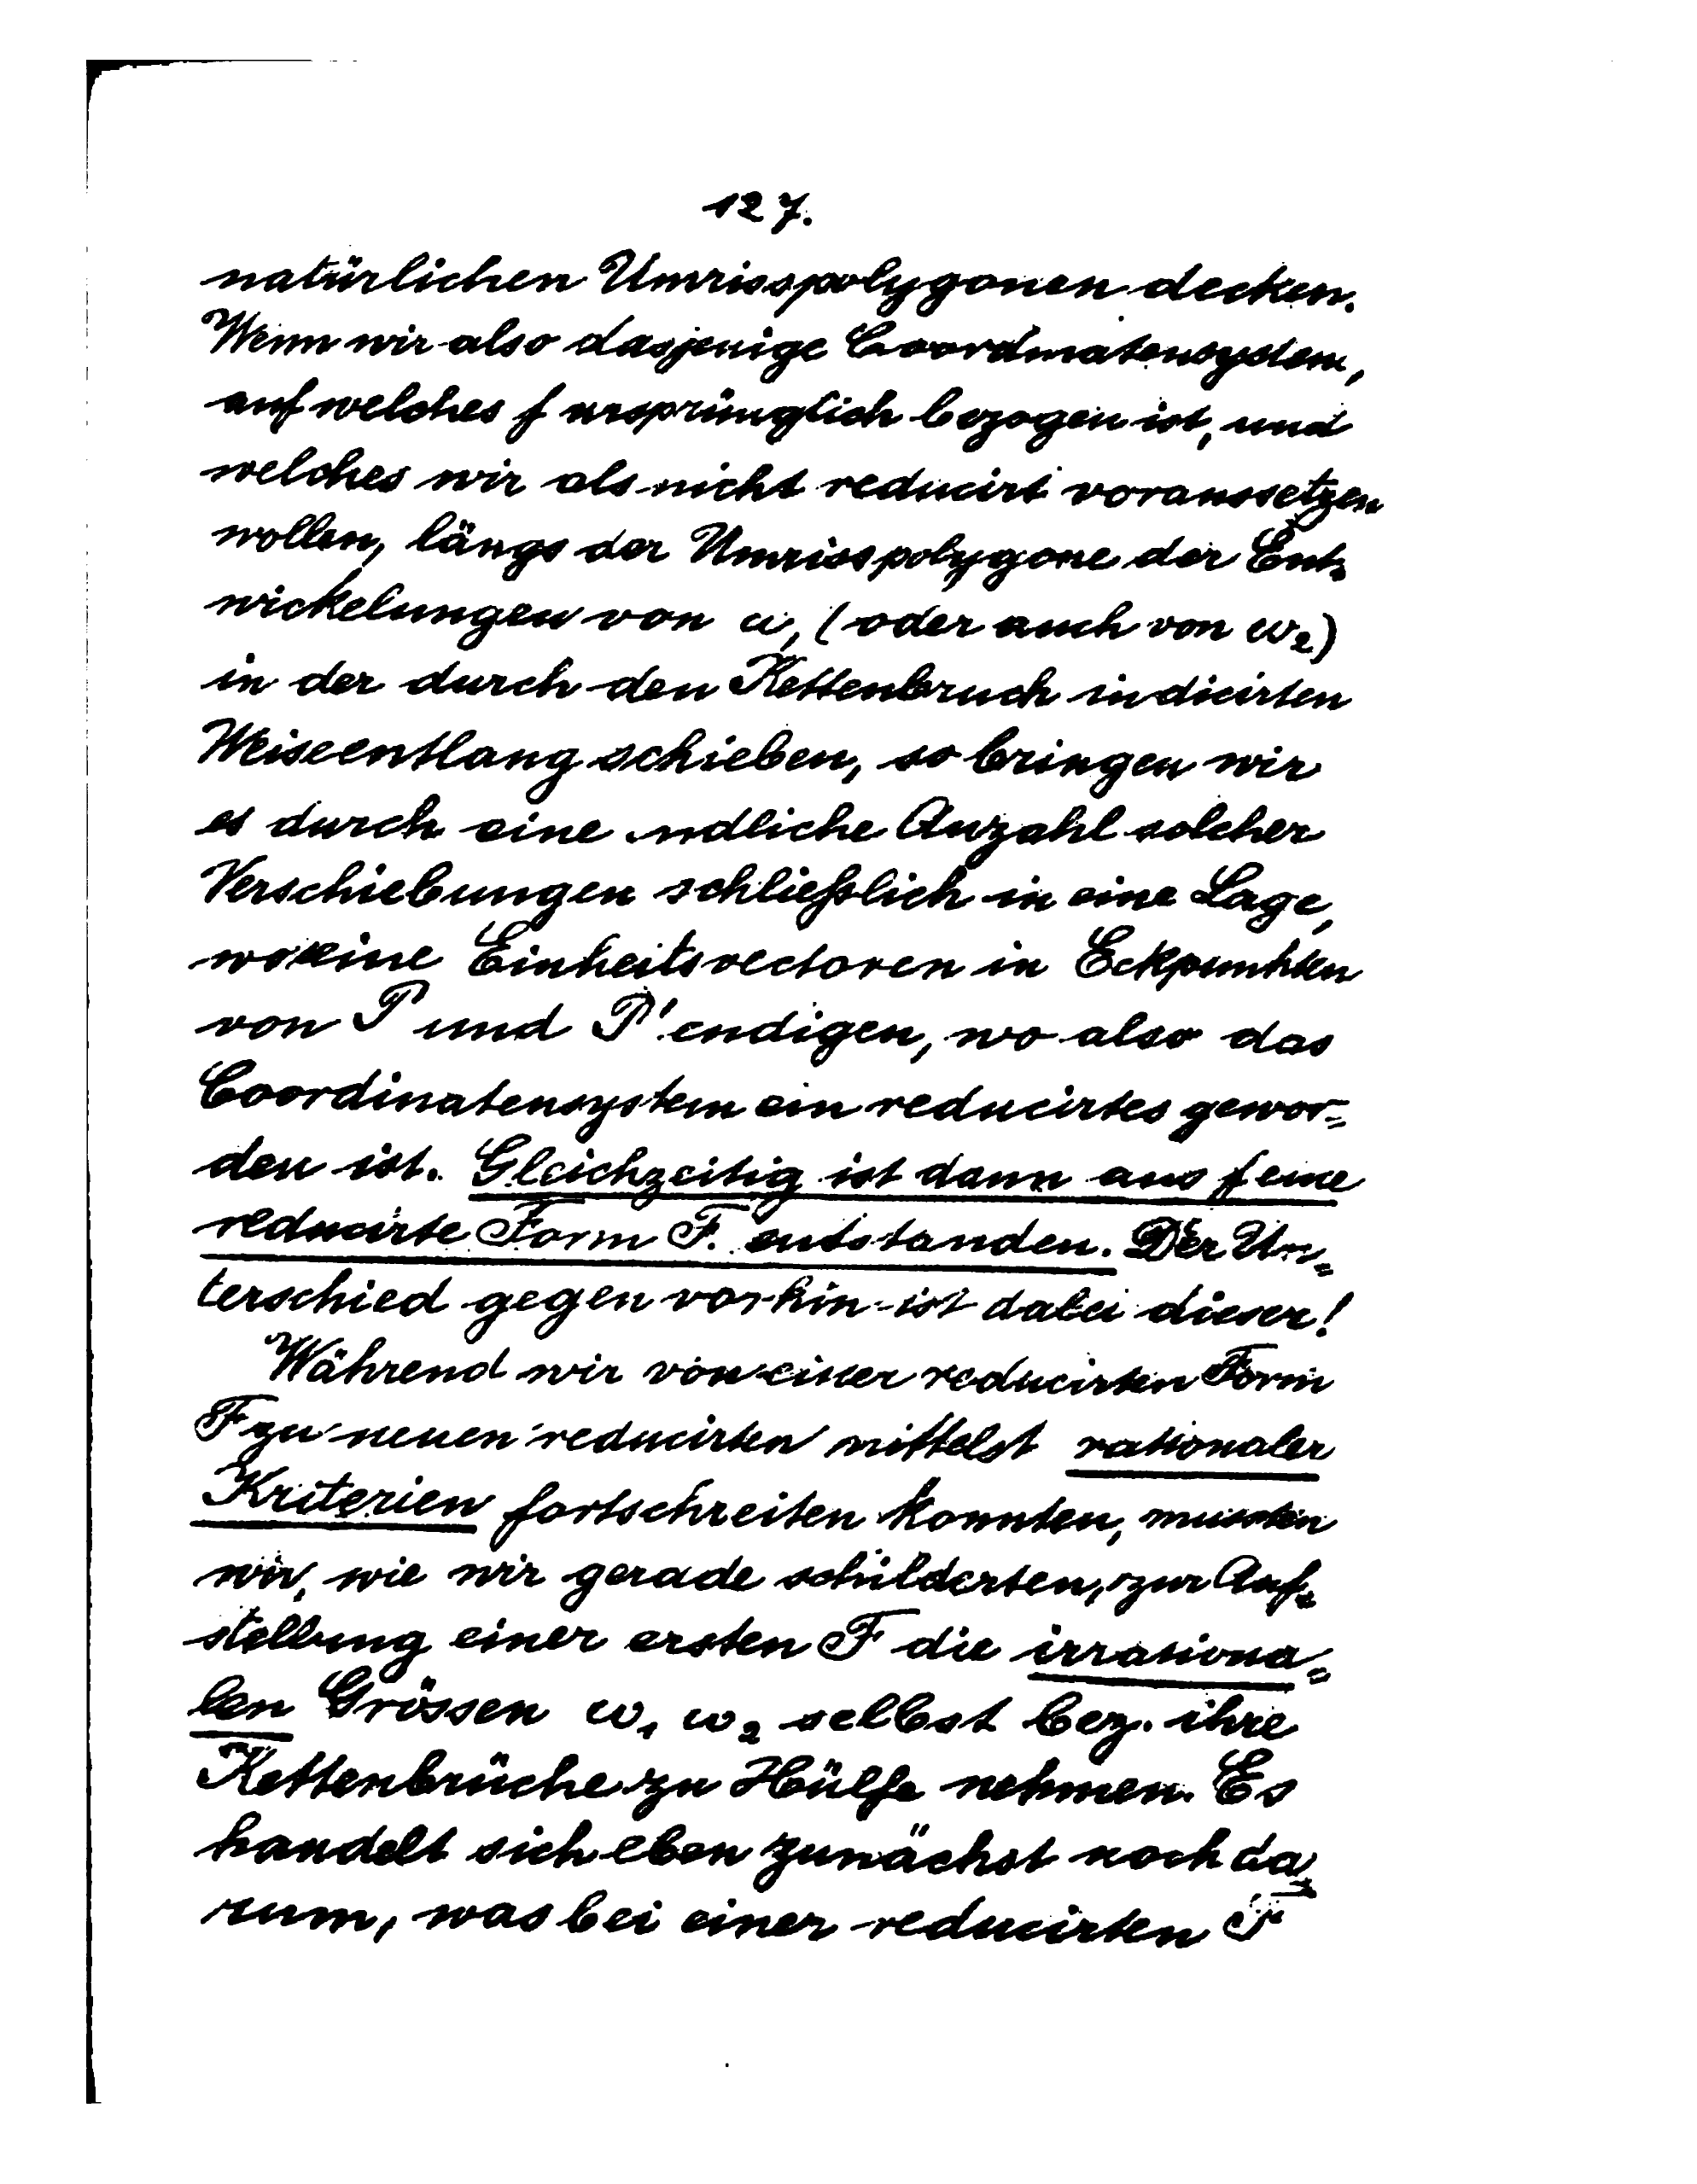 127.
natürlichen Umrisspolygonen decken.
Wenn wir also dasjenige Coordinatensystem,
auf welches f ursprünglich bezogen ist, und
welches wir als nicht reducirt voraussetzen
wollen, längs der Umrisspolygone der Ent=
wickelungen von ω₁ (oder auch von ω₂)
in der durch den Kettenbruch indicirten
Weise entlang schieben, so bringen wir
es durch eine endliche Anzahl solcher
Verschiebungen schließlich in eine Lage,
wo seine Einheitsvectoren in Eckpunkten
von P und P' endigen, wo also das
Coordinatensystem ein reducirtes gewor=
den ist. Gleichzeitig ist dann aus f eine
reducirte Form F. entstanden. Der Un=
terschied gegen vorhin ist dabei dieser!
Während wir von einer reducirten Form
F zu neuen reducirten mittelst rationaler
Kriterien fortschreiten konnten, mussten
wir, wie wir gerade schilderten, zur Auf=
stellung einer ersten F die irrationa=
len Grössen ω₁ ω₂ selbst bez. ihre
Kettenbrüche zu Hülfe nehmen. Es
handelt sich eben zunächst noch da=
rum, was bei einer reducirten F